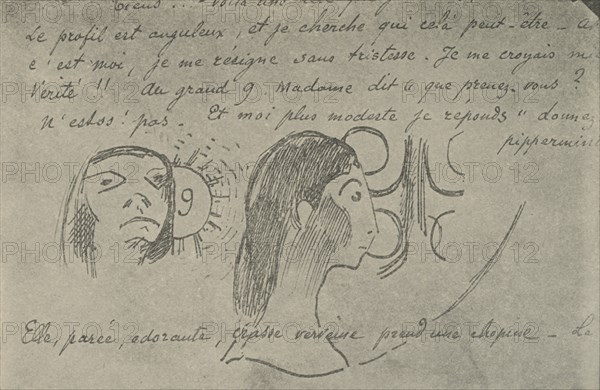 Le profil est anguleux, et je cherche qui celà peut-être -
c'est moi, je me résigne sans tristesse. Je me croyais
Vérité !! Au grand 9 Madame dit "que prenez-vous?
n'estos! pas. Et moi plus modeste je reponds "donnez
pippermint
9
Elle, parée, odorante, grasse prend une chopine - La